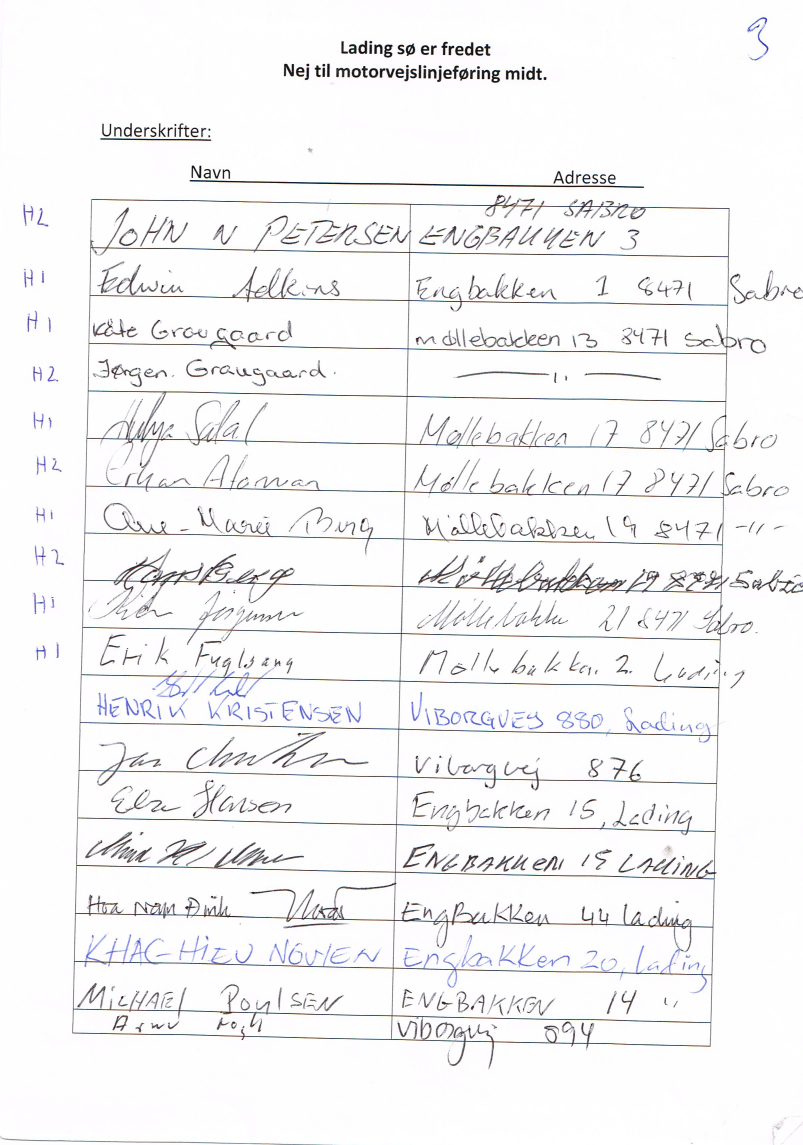 3
Lading sø er fredet
Nej til motorvejslinjeføring midt.
Underskrifter:
Navn Adresse
8471 SABRO
H2 JOHN N PETERSEN ENGBAKKEN 3
H1 Edwin Adkins Engbakken 1 8471 Sabro
H1 Käte Graugaard Møllebakken 13 8471 Sabro
H2 Jørgen Graugaard. — 11 —
H1 Møllebakken 17 8471 Sabro
H2 Erkan Ataman Møllebakken 17 8471 Sabro
H1 Ane-Marie Berg Møllebakken 19 8471 -11-
H2 Berg Møllebakken 19 8471 Sabro
H1 Møllebakken 21 8471 Sabro.
H1 Erik Fuglsang Møllebakken 2. Lading
HENRIK KRISTENSEN VIBORGVEJ 880, Lading
Jan Viborgvej 876
Else Hansen Engbakken 15, Lading
ENGBAKKEN 15 LADING
Hoa Nam Dinh EngBakken 44 lading
KHAC-HIEU NGUYEN Engbakken 20, lading
MICHAEL POULSEN ENGBAKKEN 14 "
Viborgvej 894